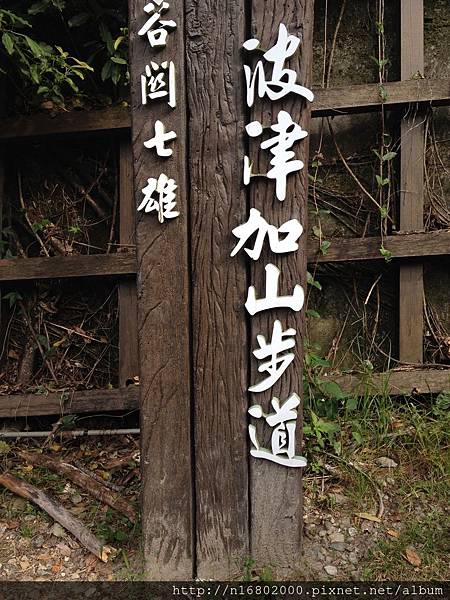 波津加山步道
谷關七雄
http://n16802000.pixnet.net/album